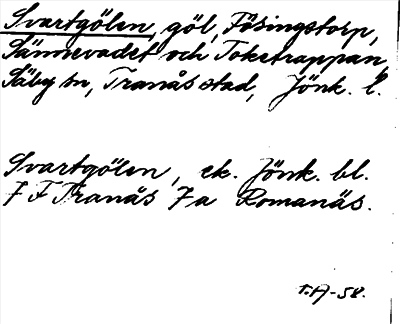 Svartgölen, göl, Fösingstorp,
Sännevadet och Toketrappan,
Säby sn, Tranås stad, Jönk. l.
Svartgölen, ek. Jönk. bl.
7 F Tranås 7a Romanäs.
T.A-58.